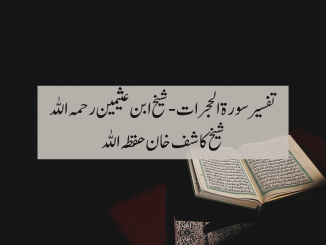 تفسیر سورۃ الحجرات - شیخ ابن عثیمین رحمہ اللہ
شیخ کاشف خان حفظہ اللہ